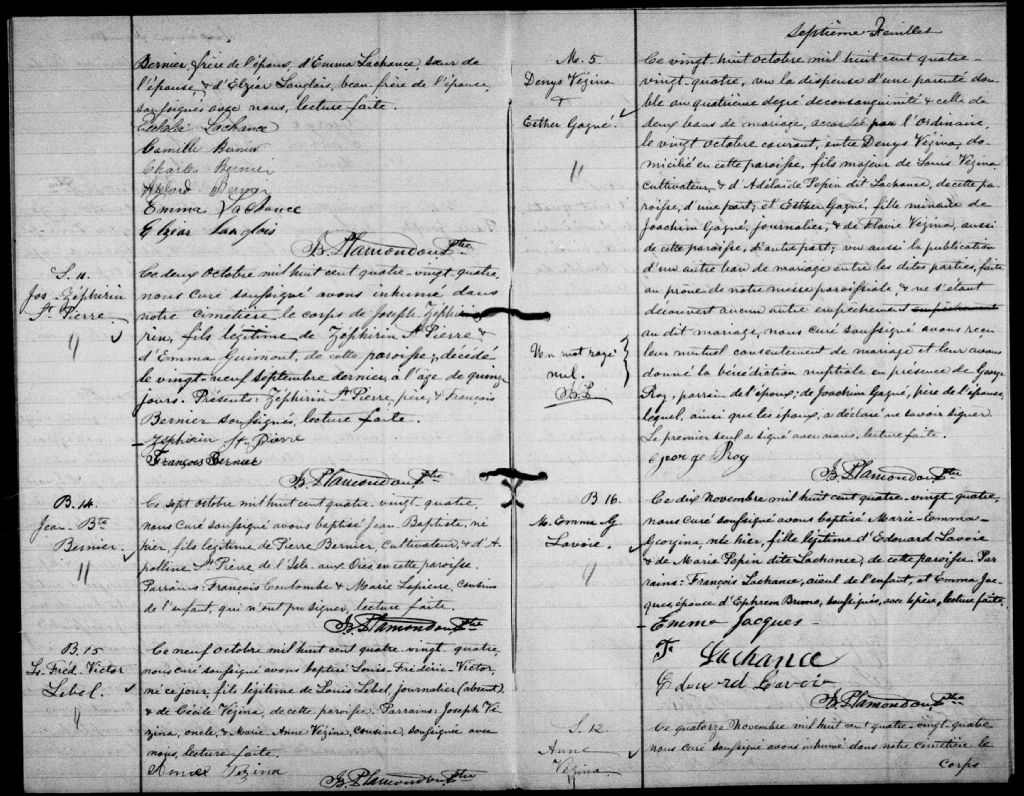 Bernier, frère de l'époux, d'Emma Lachance, sœur de
l'épouse, & d'Elzéar Langlois, beau-frère de l'épouse,
soussignés avec nous, lecture faite.
Lachance
Camille Bernier
Charles Bernier
Bernier
Emma Lachance
Elzéar Langlois
B. Plamondon Ptre
S. 11.
Jos-Zéphirin
St Pierre
Ce deux Octobre mil huit cent quatre-vingt-quatre,
nous curé soussigné avons inhumé dans
notre cimetière le corps de Joseph-Zéphi-
rin, fils légitime de Zéphirin St Pierre &
d'Emma Guimont, de cette paroisse, décédé
le vingt-neuf septembre dernier, à l'age de quinze
jours. Présents: Zéphirin St Pierre, père, & François
Bernier soussignés, lecture faite.
Zéphirin St. Pierre
François Bernier
B. Plamondon Ptre
B. 14.
Jean-Bte
Bernier.
Ce sept octobre mil huit cent quatre-vingt-quatre,
nous curé soussigné avons baptisé Jean Baptiste, né
hier, fils légitime de Pierre Bernier, cultivateur, & d'A-
polline St Pierre de l'Isle-aux-Oies, en cette paroisse.
Parrains: François Coulombe & Marie Lapierre, cousins
de l'enfant, qui n'ont pu signer, lecture faite.
B. Plamondon Ptre
B. 15
Ls-Fréd-Victor
Lebel.
Ce neuf Octobre mil huit cent quatre-vingt-quatre,
nous curé soussigné avons baptisé Louis-Frédéric-Victor,
né ce jour, fils légitime de Louis Lebel, journalier (absent)
& de Cécile Vézina, de cette paroisse. Parrains: Joseph Vé-
zina, oncle, & Marie Anne Vézina, cousine, soussignée avec
nous, lecture faite.
Vézina
B. Plamondon Ptre
Septième Feuillet
M. 5
Denys Vézina
&
Esther Gagné
Ce vingt huit octobre mil huit cent quatre-
vingt-quatre, vu la dispense d'une parenté dou-
ble au quatrième degré de consanguinité & celle de
deux bans de mariage, accordée par l'Ordinaire,
le vingt octobre courant, entre Denys Vézina, do-
micilié en cette paroisse, fils majeur de Louis Vézina
cultivateur, & d'Adélaïde Pepin dit Lachance, de cette pa-
roisse, d'une part; et Esther Gagné, fille mineure de
Joachim Gagné, journalier, & de Flavie Vézina, aussi
de cette paroisse, d'autre part; vu aussi la publication
d'un autre ban de mariage entre les dites parties, faite
au prône de notre messe paroissiale, & ne s'étant
découvert aucun autre empêchement
au dit mariage, nous curé soussigné avons reçu
leur mutuel consentement de mariage et leur avons
donné la bénédiction nuptiale en présence de George
Roy, parrain de l'époux; de Joachim Gagné, père de l'épouse,
lequel, ainsi que les époux, a déclaré ne savoir signer.
Le premier seul a signé avec nous, lecture faite.
Un mot rayé
nul.
B. P.
George Roy
B. Plamondon Ptre
B 16.
M. Emma-G.
Lavoie.
Ce dix Novembre mil huit cent quatre-vingt-quatre,
nous curé soussigné avons baptisé Marie-Emma-
Georgina, née hier, fille légitime d'Edouard Lavoie
& de Marie Pepin dite Lachance, de cette paroisse. Par-
rains: François Lachance, aïeul de l'enfant, et Emma Jac-
ques, épouse d'Ephrem Bruno, soussignés, avec le père, lecture faite.
Emma Jacques
F. Lachance
Edouard Lavoie
B. Plamondon Ptre
S. 12
Anne
Vézina
Ce quatorze Novembre mil huit cent quatre-vingt-quatre
nous curé soussigné avons inhumé dans notre cimetière le
corps